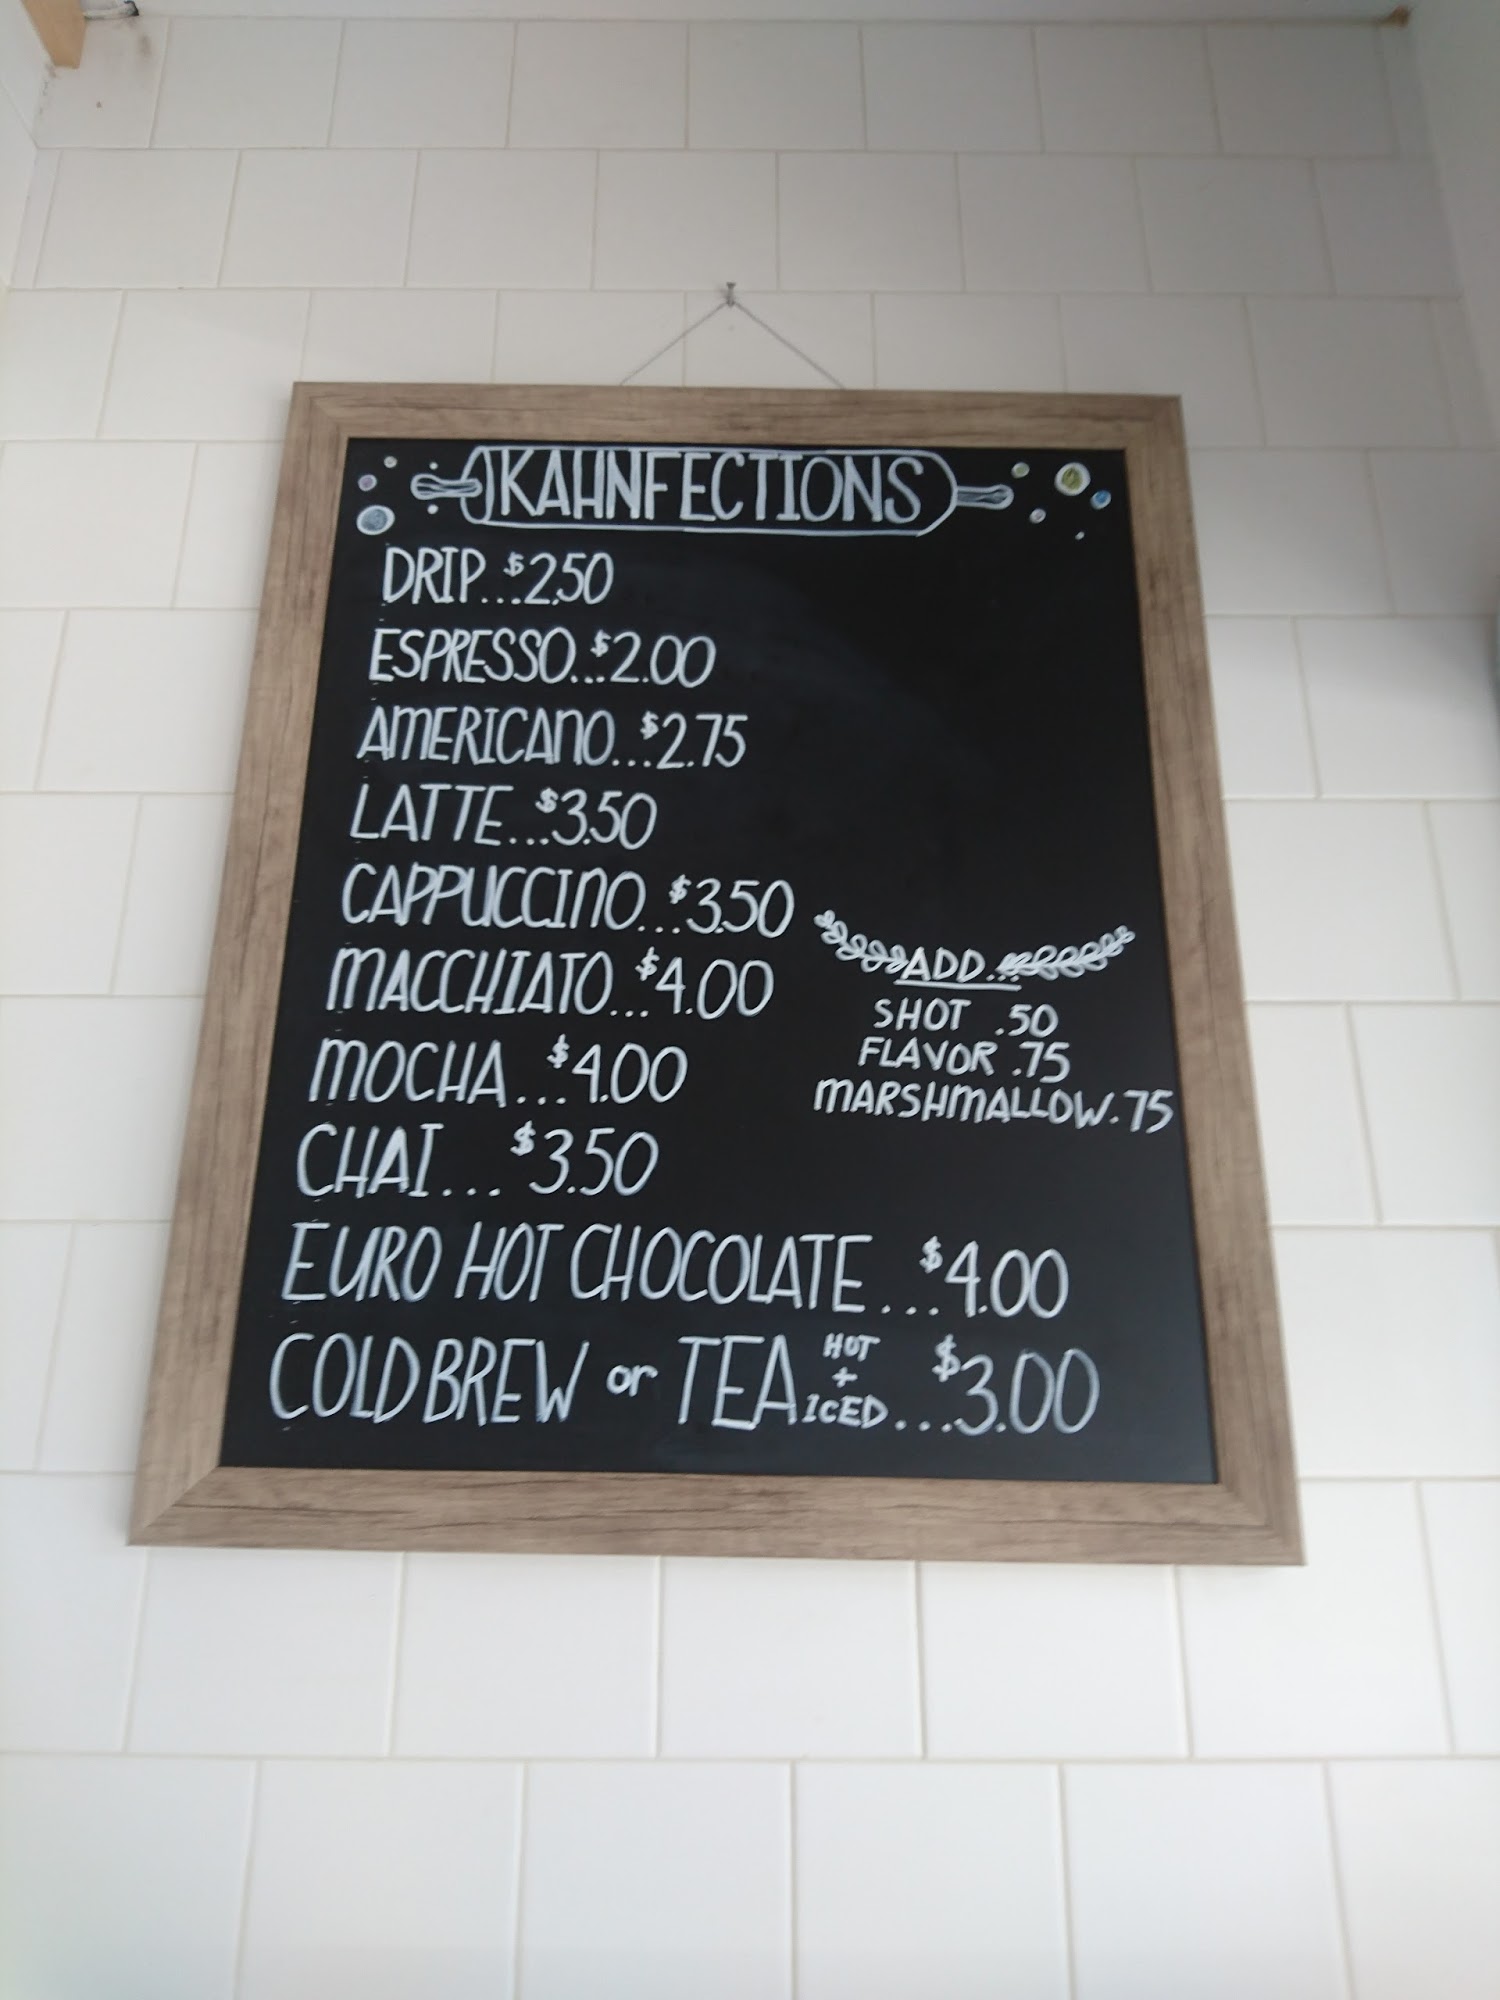 KAHNFECTIONS
DRIP...$2.50
ESPRESSO...$2.00
AMERICANO...$2.75
LATTE...$3.50
CAPPUCCINO...$3.50
MACCHIATO...$4.00
MOCHA...$4.00
CHAI... $3.50
EURO HOT CHOCOLATE...$4.00
COLD BREW or TEA HOT + ICED...$3.00
ADD...
SHOT .50
FLAVOR .75
MARSHMALLOW .75